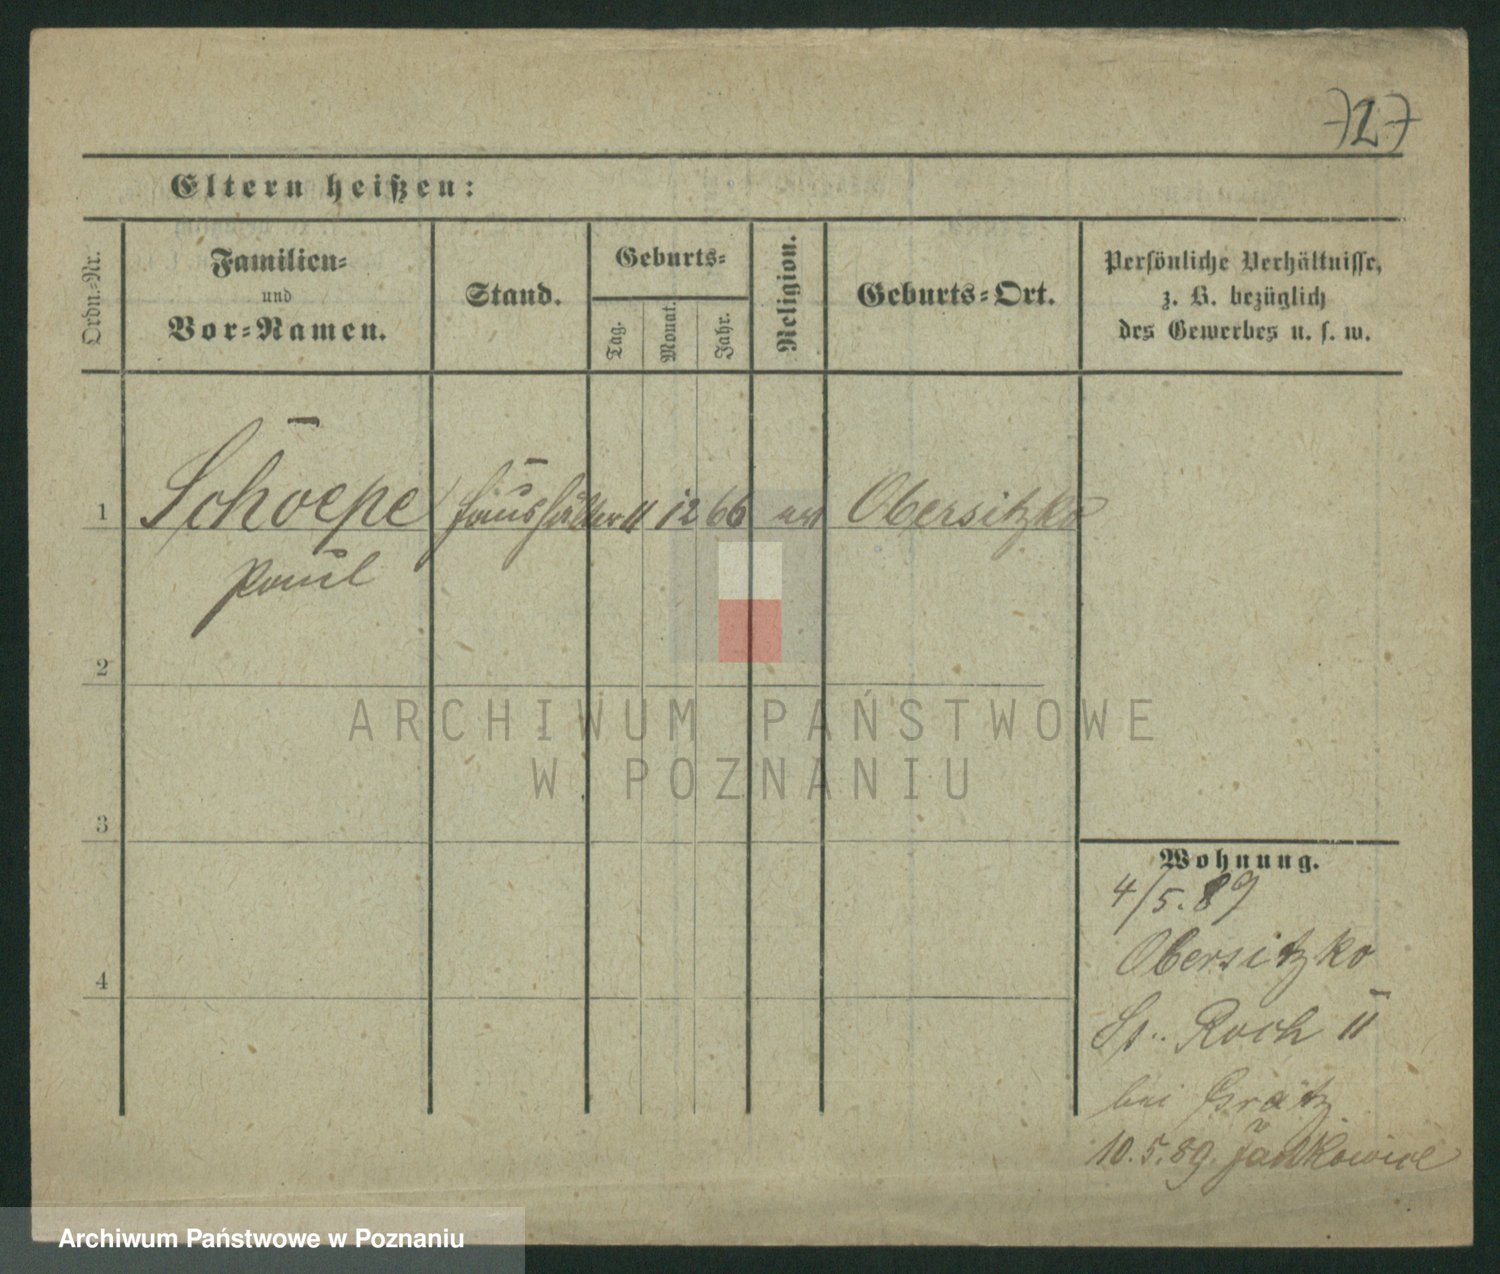 727
Eltern heißen:
Ordn.-Nr.
Familien-
und
Vor-Namen.
Stand.
Geburts-
Tag.
Monat.
Jahr.
Religion.
Geburts-Ort.
Persönliche Verhältnisse,
z. B. bezüglich
des Gewerbes u. s. w.
1 Schoepe Haushälter 11 12 66 Obersitzko
Paul
2
3
4
Wohnung.
4/5.89
Obersitzko
St. Roch 11
bei Gratz
10.5.89. Jankowice
ARCHIWUM PAŃSTWOWE
W POZNANIU
Archiwum Państwowe w Poznaniu